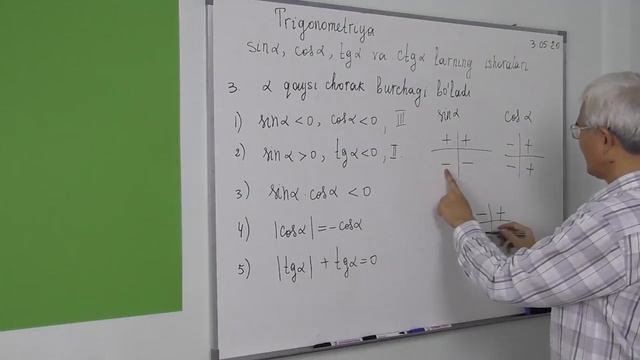 Trigonometriya
3.05.20
sinα, cosα, tgα va ctgα larning ishoralari
3. α qaysi chorak burchagi bo'ladi
1) sinα < 0, cosα < 0, III
2) sinα > 0, tgα < 0, II.
3) sinα · cosα < 0
4) |cosα| = -cosα
5) |tgα| + tgα = 0
sinα cosα
+ + - +
- - - +
- +